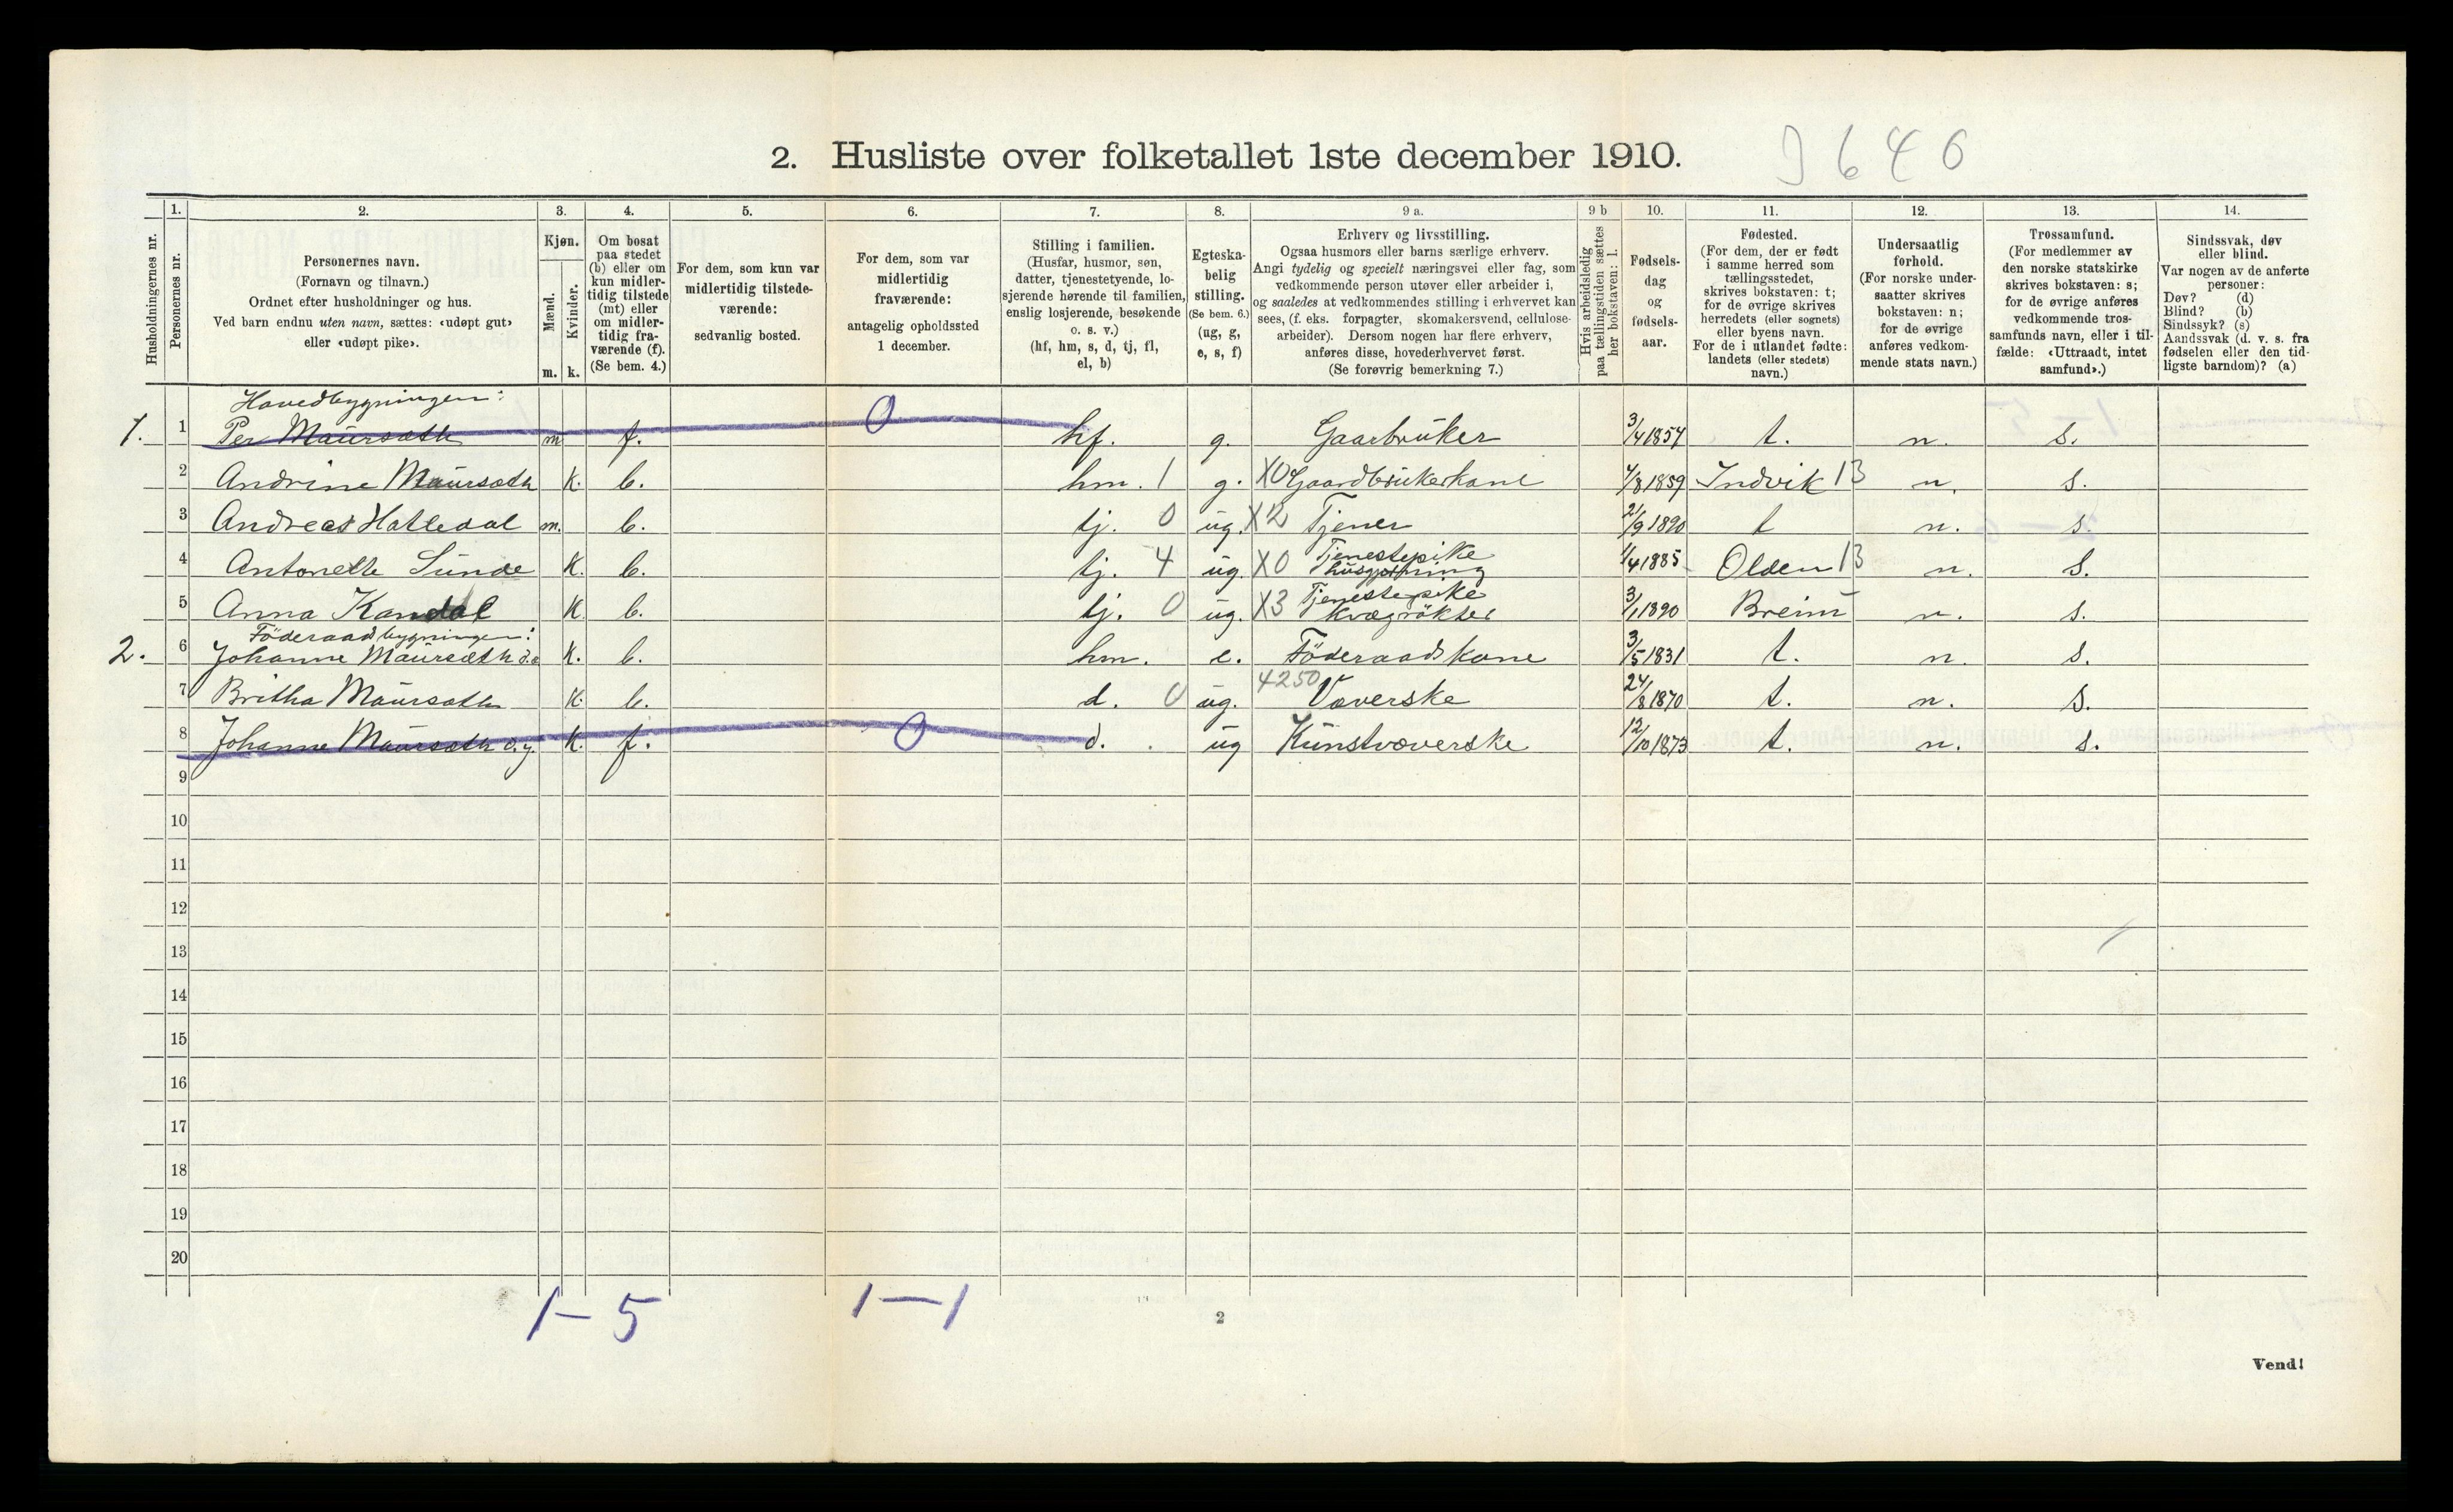 2. Husliste over folketallet 1ste december 1910.
9646
Husholdningernes nr.
1.
Personernes nr.
2.
Personernes navn.
(Fornavn og tilnavn.)
Ordnet efter husholdninger og hus.
Ved barn endnu uten navn, sættes: «udøpt gut»
eller «udøpt pike».
3.
Kjøn.
Mænd.
m.
Kvinder.
k.
4.
Om bosat
paa stedet
(b) eller om
kun midler-
tidig tilstede
(mt) eller
om midler-
tidig fra-
værende (f).
(Se bem. 4.)
5.
For dem, som kun var
midlertidig tilstede-
værende:
sedvanlig bosted.
6.
For dem, som var
midlertidig
fraværende:
antagelig opholdssted
1 december.
7.
Stilling i familien.
(Husfar, husmor, søn,
datter, tjenestetyende, lo-
sjerende hørende til familien,
enslig losjerende, besøkende
o. s. v.)
(hf, hm, s, d, tj, fl,
el, b)
8.
Egteska-
belig
stilling.
(Se bem. 6.)
(ug, g,
e, s, f)
9 a.
Erhverv og livsstilling.
Ogsaa husmors eller barns særlige erhverv.
Angi tydelig og specielt næringsvei eller fag, som
vedkommende person utøver eller arbeider i,
og saaledes at vedkommendes stilling i erhvervet kan
sees, (f. eks. forpagter, skomakersvend, cellulose-
arbeider). Dersom nogen har flere erhverv,
anføres disse, hovederhvervet først.
(Se forøvrig bemerkning 7.)
9 b
Hvis arbeidsledig
paa tællingstiden sættes
her bokstaven: l.
10.
Fødsels-
dag
og
fødsels-
aar.
11.
Fødested.
(For dem, der er født
i samme herred som
tællingsstedet,
skrives bokstaven: t;
for de øvrige skrives
herredets (eller sognets)
eller byens navn.
For de i utlandet fødte:
landets (eller stedets)
navn.)
12.
Undersaatlig
forhold.
(For norske under-
saatter skrives
bokstaven: n;
for de øvrige
anføres vedkom-
mende stats navn.)
13.
Trossamfund.
(For medlemmer av
den norske statskirke
skrives bokstaven: s;
for de øvrige anføres
vedkommende tros-
samfunds navn, eller i til-
fælde: «Uttraadt, intet
samfund».)
14.
Sindssvak, døv
eller blind.
Var nogen av de anførte
personer:
Døv? (d)
Blind? (b)
Sindssyk? (s)
Aandssvak (d. v. s. fra
fødselen eller den tid-
ligste barndom)? (a)
Hovedbygningen:
1. 1 Per Maursæth m f. 0 hf. g. Gaarbruker 3/4 1857 t. n. s.
2 Andrine Maursæth K. b. hm. 1 g. X0 Gaardbrukerkone 4/8 1859 Indvik 13 n. s.
3 Andreas Hatledal m. b. tj. 0 ug. X2 Tjener 21/9 1890 t n. s.
4 Antonette Sunde K. b. tj. 4 ug. X0 Tjenestepike husgjerning 1/4 1885 Olden 13 n. s.
5 Anna Kandal K b. tj. 0 ug. X3 Tjenestepike Kvægrökter 3/1 1890 Breim n. s.
Föderaadbygningen:
2. 6 Johanne Maursæth d.e K. b. hm. e. Föderaadskone 3/5 1831 t. n. s.
7 Britha Maursæth K. b. d. 0 ug. 4250 Væverske 24/8 1870 t. n. s.
8 Johanne Maursæth d.y. K. f. 0 d. ug Kunstvæverske 12/10 1873 t. n. s.
9
10
11
12
13
14
15
16
17
18
19
20
1–5 1–1
2
Vend!